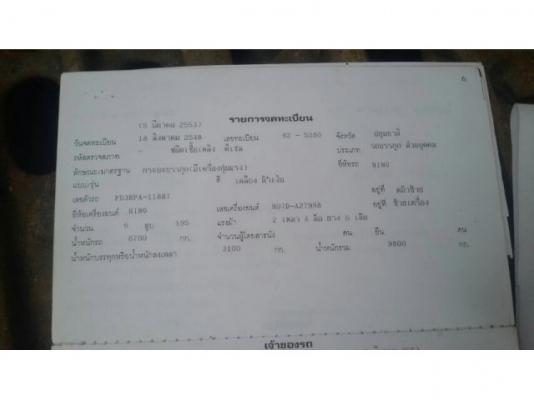 6
รายการจดทะเบียน
(5 มีนาคม 2553)
วันจดทะเบียน 18 สิงหาคม 2548 เลขทะเบียน 82 - 5380 จังหวัด ปทุมธานี
รหัสตรวจสภาพ - ชนิดเชื้อเพลิง ดีเซล ประเภท รถบรรทุก ส่วนบุคคล
ลักษณะ/มาตรฐาน กระบะบรรทุก(มีเครื่องทุ่นแรง) ยี่ห้อรถ HINO
แบบ/รุ่น สี เหลือง
เลขตัวรถ อยู่ที่
ยี่ห้อเครื่องยนต์ HINO เลขเครื่องยนต์ H07D-A27998 อยู่ที่ ซ้ายเครื่อง
จำนวน 6 สูบ 195 แรงม้า 2 เพลา 4 ล้อ ยาง 6 เส้น
น้ำหนักรถ 6700 กก. จำนวนผู้โดยสารนั่ง คน ยืน คน
น้ำหนักบรรทุกหรือน้ำหนักลงเพลา 3100 กก. น้ำหนักรวม 9800 กก.
เจ้าของรถ